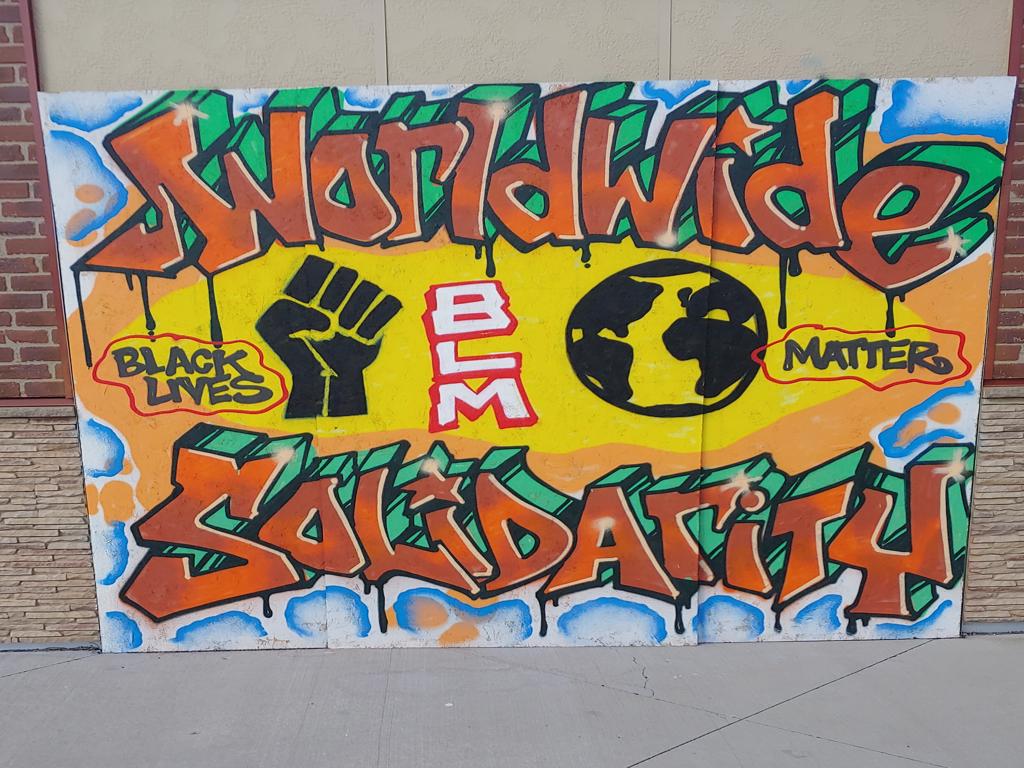 Worldwide
BLACK
LIVES
B
L
M
MATTER.
SOLiDARiTY